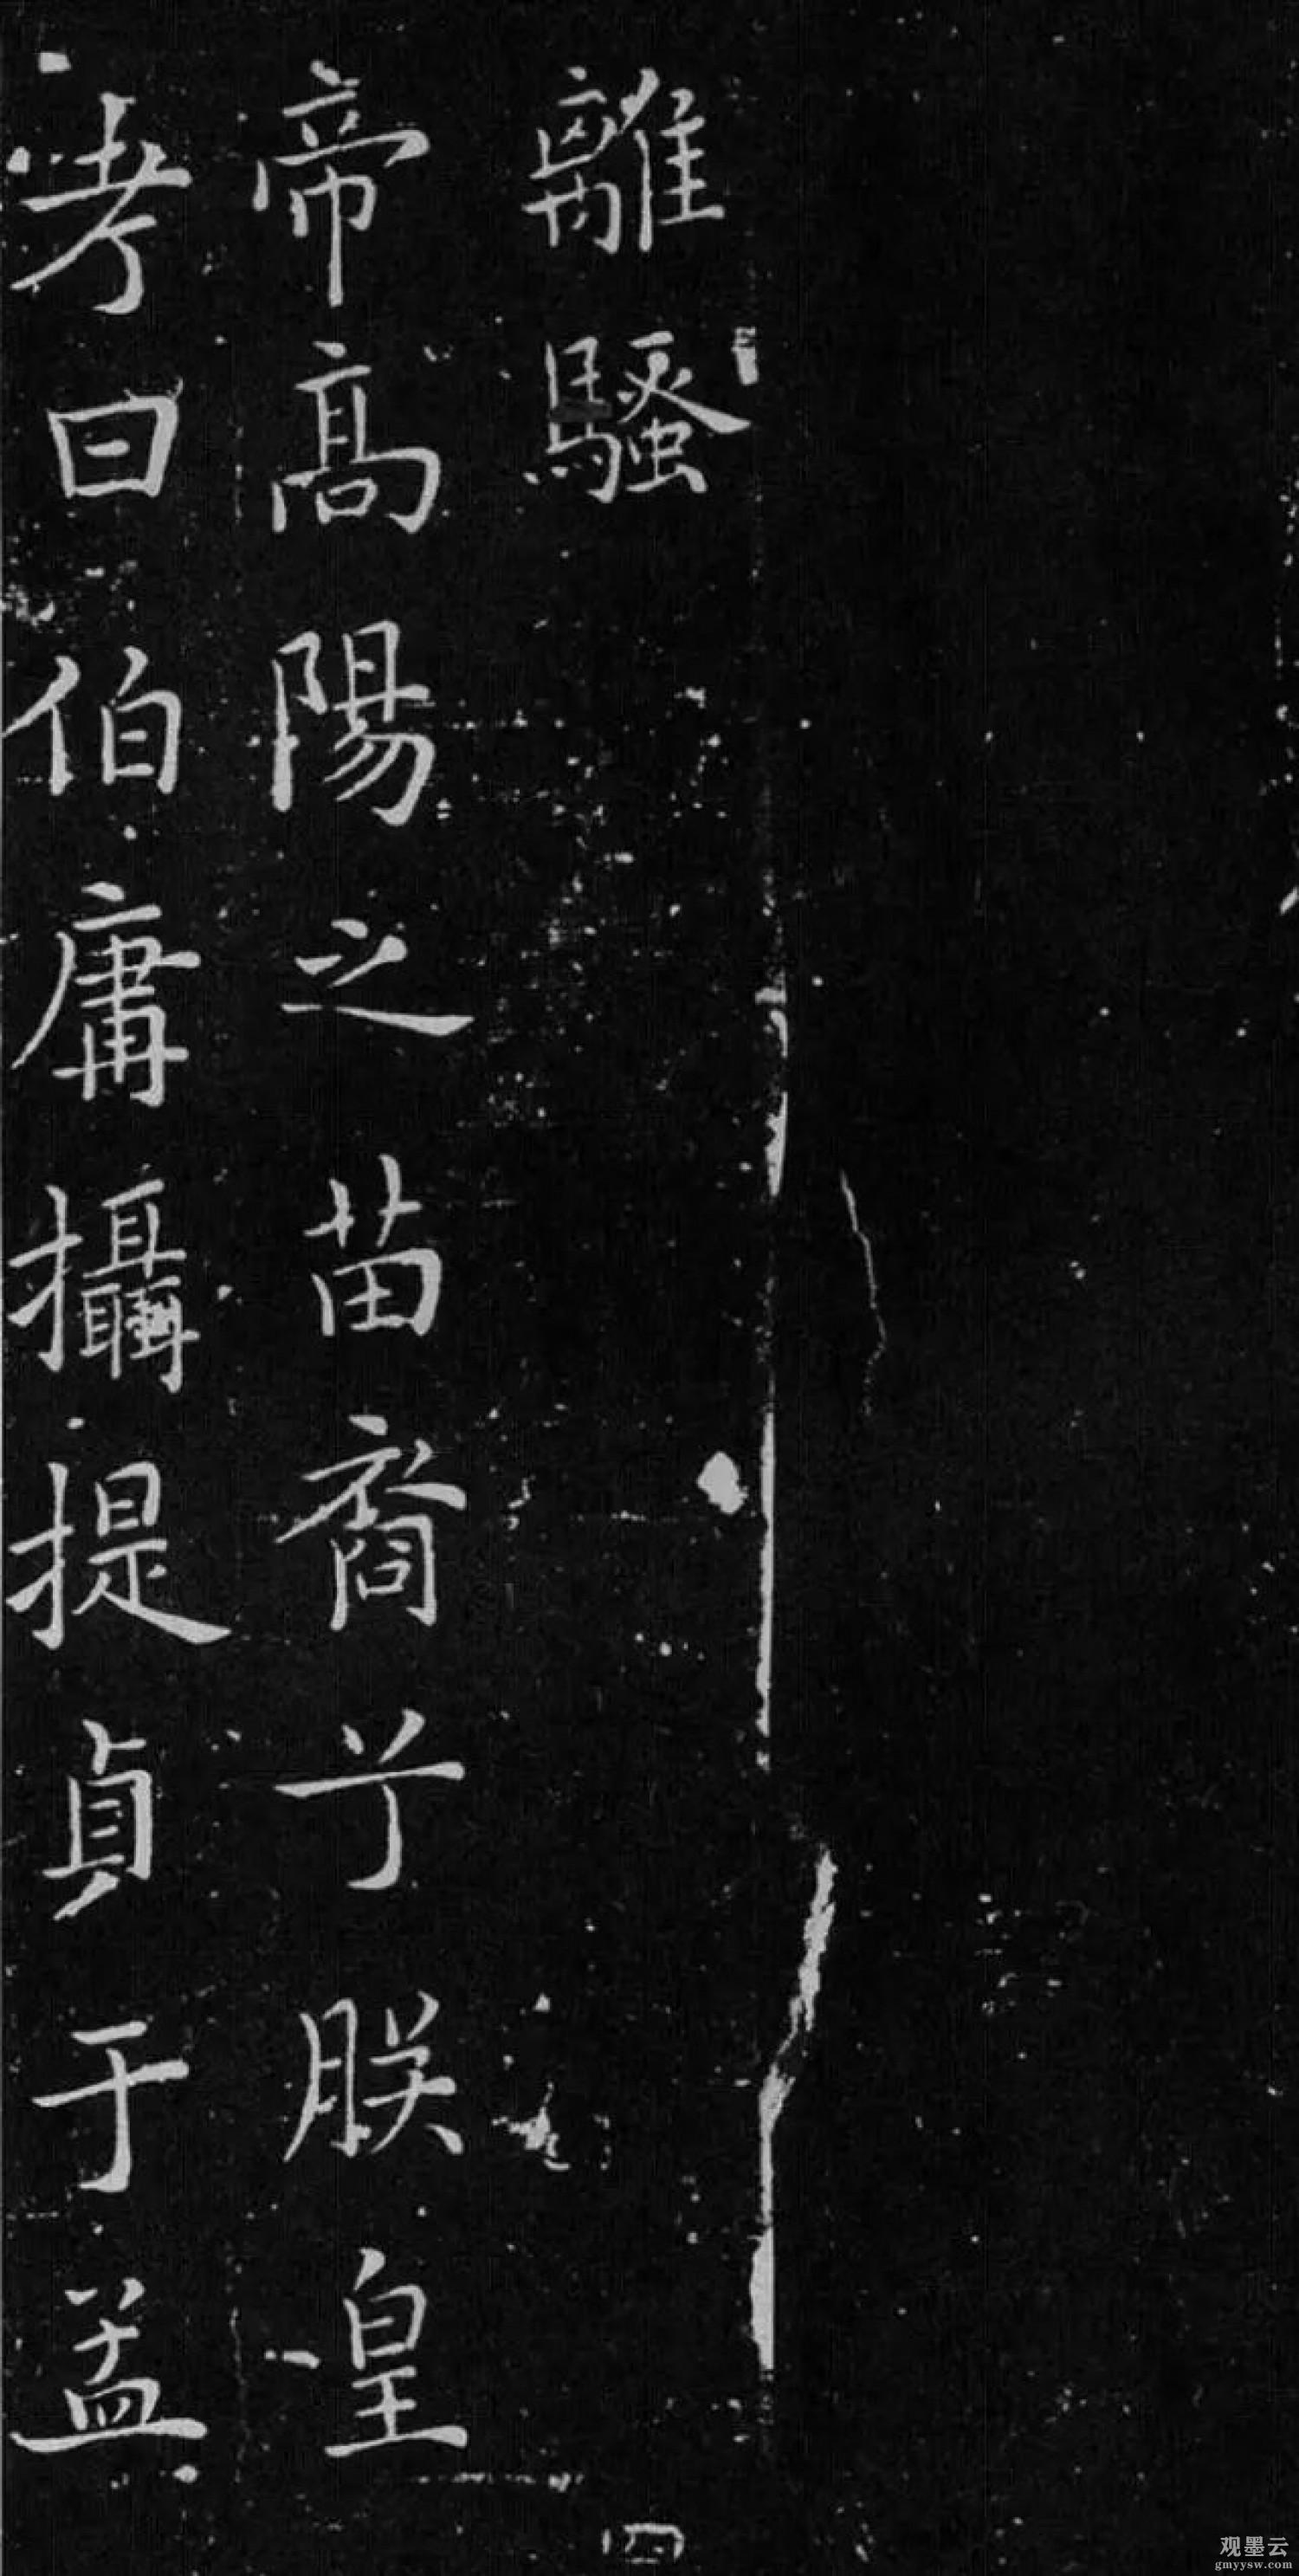 離騷
帝高陽之苗裔兮朕皇
考曰伯庸攝提貞于孟
四
观墨云
gmyysw.com